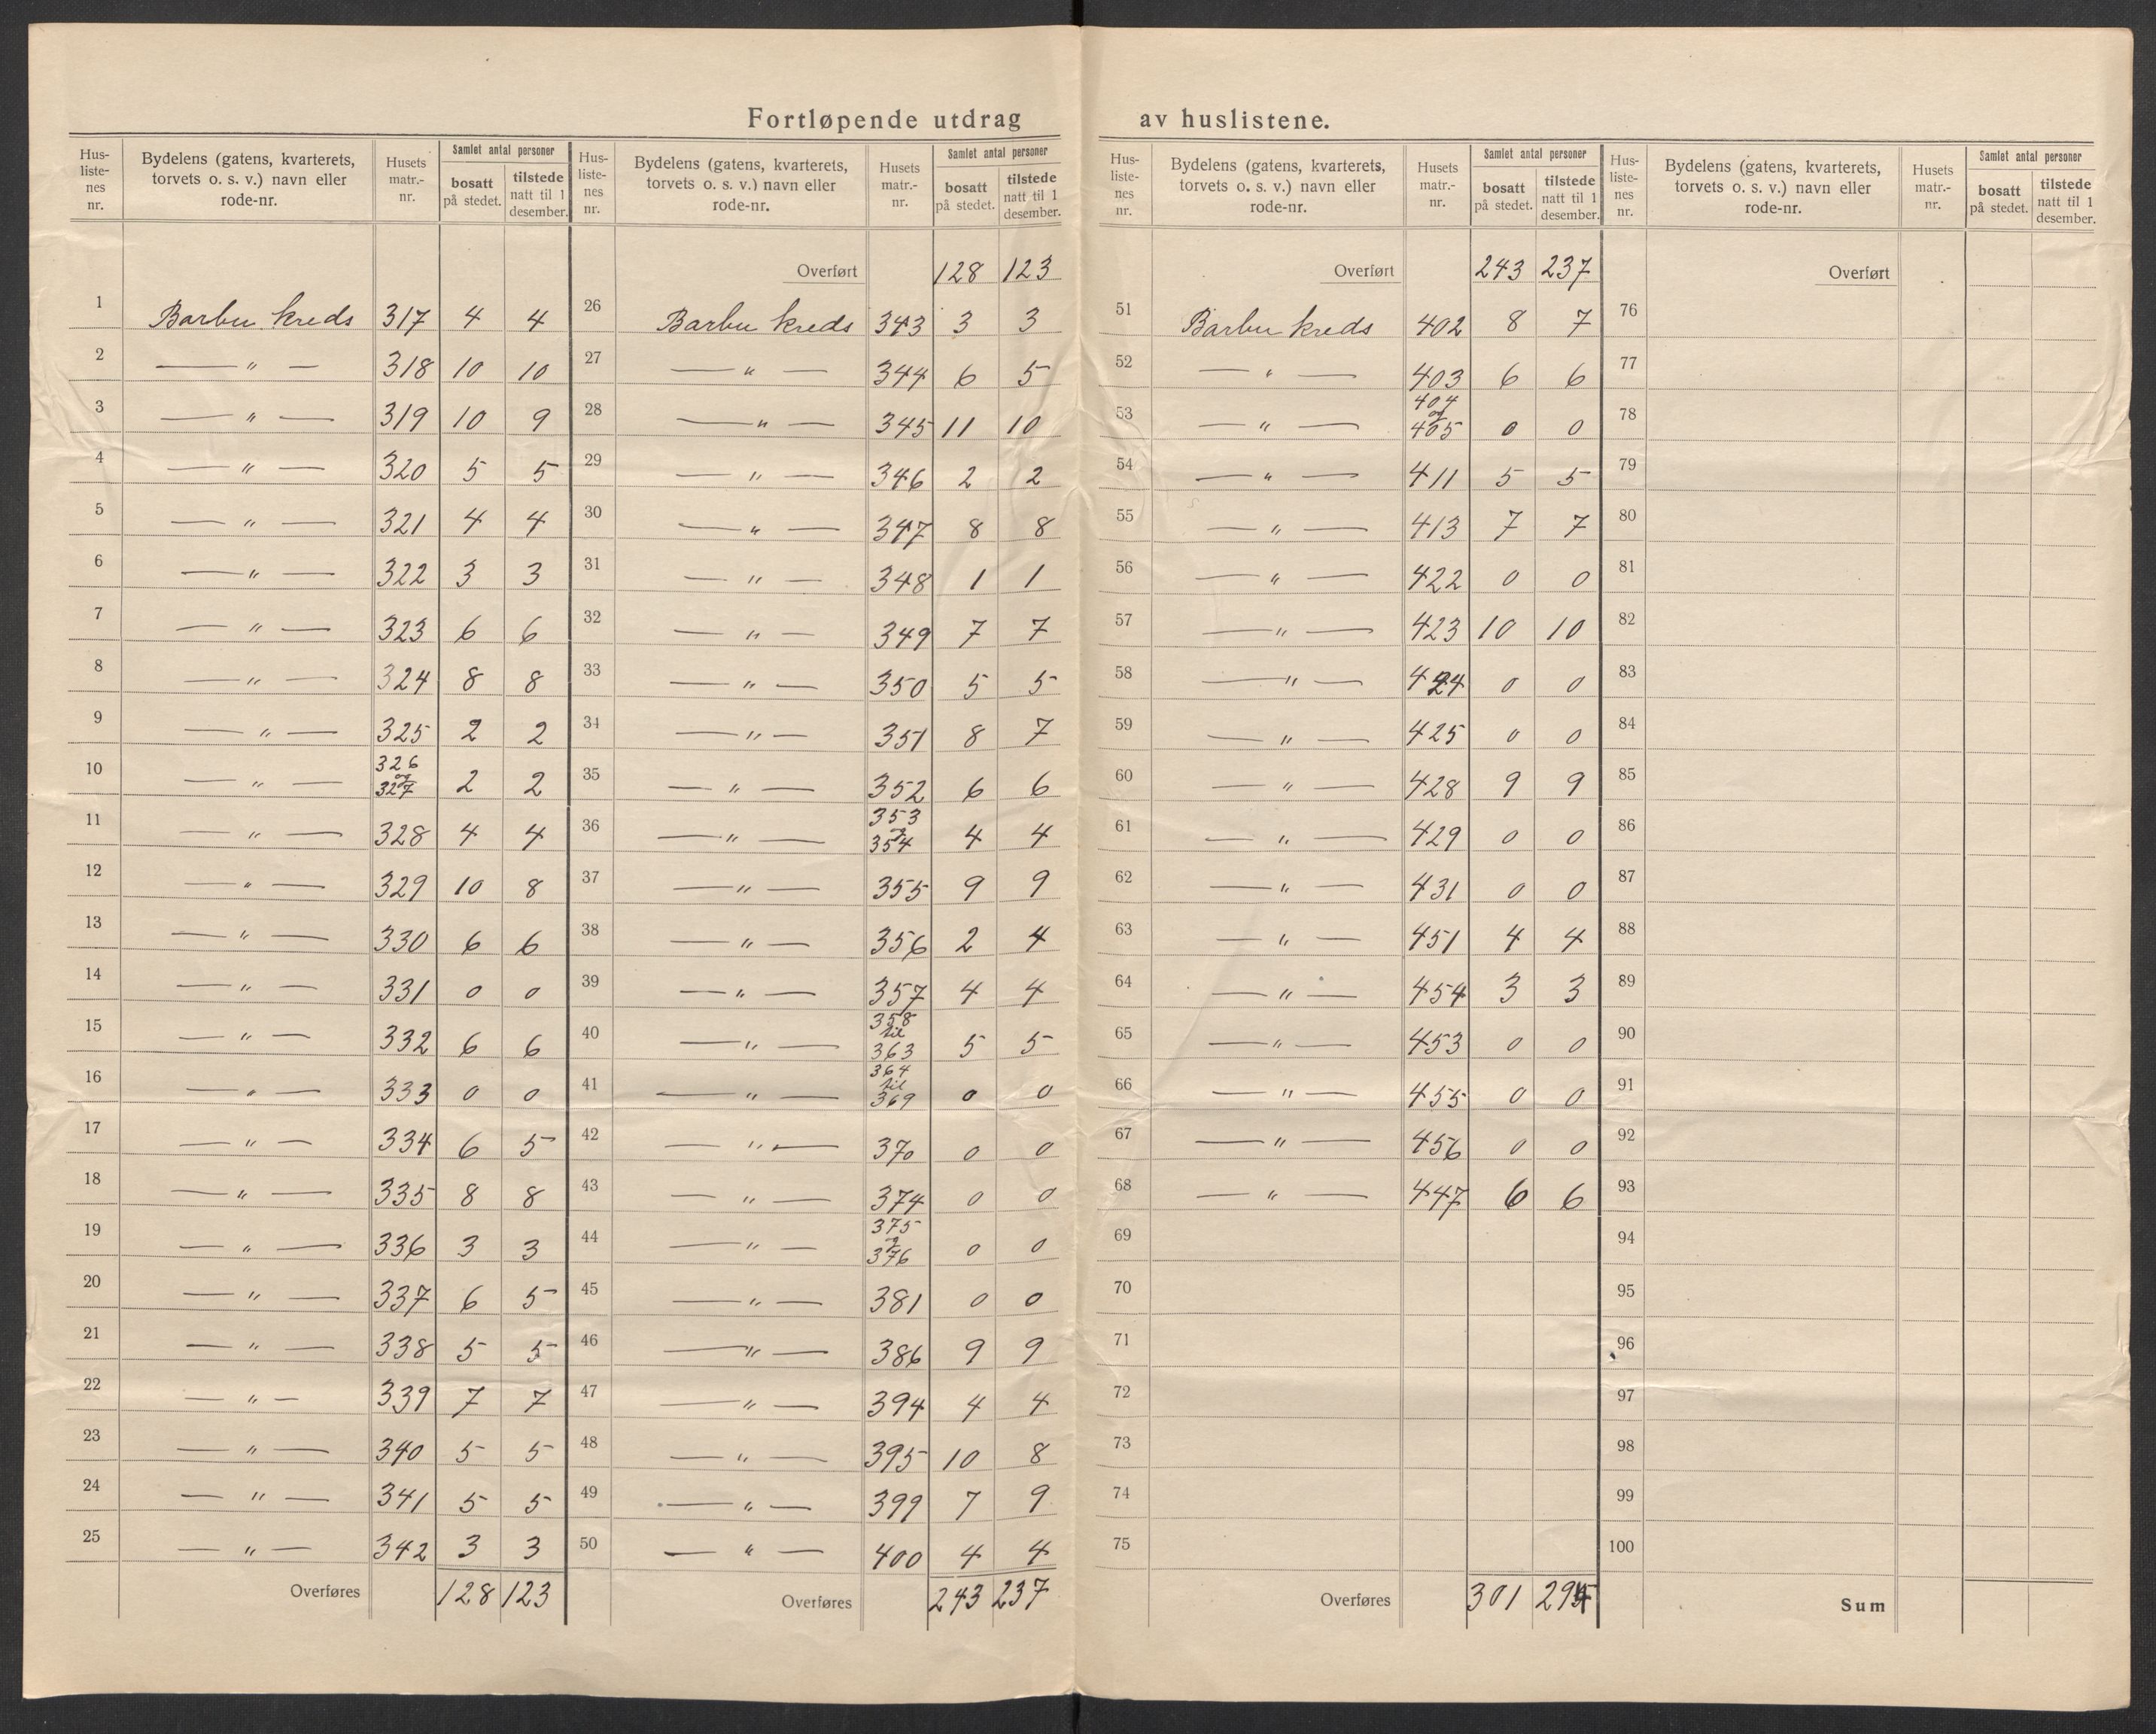 Fortløpende utdrag av huslistene.
Hus-liste-nes nr. | Bydelens (gatens, kvarterets, torvets o. s. v.) navn eller rode-nr. | Husets matr.-nr. | Samlet antal personer | bosatt på stedet. | tilstede natt til 1 desember.
1 Barbu kreds 317 4 4
2 — " — 318 10 10
3 — " — 319 10 9
4 — " — 320 5 5
5 — " — 321 4 4
6 — " — 322 3 3
7 — " — 323 6 6
8 — " — 324 8 8
9 — " — 325 2 2
10 — " — 326 og 327 2 2
11 — " — 328 4 4
12 — " — 329 10 8
13 — " — 330 6 6
14 — " — 331 0 0
15 — " — 332 6 6
16 — " — 333 0 0
17 — " — 334 6 5
18 — " — 335 8 8
19 — " — 336 3 3
20 — " — 337 6 5
21 — " — 338 5 5
22 — " — 339 7 7
23 — " — 340 5 5
24 — " — 341 5 5
25 — " — 342 3 3
Overføres 128 123
Hus-liste-nes nr. | Bydelens (gatens, kvarterets, torvets o. s. v.) navn eller rode-nr. | Husets matr.-nr. | Samlet antal personer | bosatt på stedet. | tilstede natt til 1 desember.
Overført 128 123
26 Barbu kreds 343 3 3
27 — " — 344 6 5
28 — " — 345 11 10
29 — " — 346 2 2
30 — " — 347 8 8
31 — " — 348 1 1
32 — " — 349 7 7
33 — " — 350 5 5
34 — " — 351 8 7
35 — " — 352 6 6
36 — " — 353 og 354 4 4
37 — " — 355 9 9
38 — " — 356 2 4
39 — " — 357 4 4
40 — " — 358 til 363 5 5
41 — " — 364 til 369 0 0
42 — " — 370 0 0
43 — " — 374 0 0
44 — " — 375 og 376 0 0
45 — " — 381 0 0
46 — " — 386 9 9
47 — " — 394 4 4
48 — " — 395 10 8
49 — " — 399 7 9
50 — " — 400 4 4
Overføres 243 237
Hus-liste-nes nr. | Bydelens (gatens, kvarterets, torvets o. s. v.) navn eller rode-nr. | Husets matr.-nr. | Samlet antal personer | bosatt på stedet. | tilstede natt til 1 desember.
Overført 243 237
51 Barbu kreds 402 8 7
52 — " — 403 6 6
53 — " — 404 og 405 0 0
54 — " — 411 5 5
55 — " — 413 7 7
56 — " — 422 0 0
57 — " — 423 10 10
58 — " — 424 0 0
59 — " — 425 0 0
60 — " — 428 9 9
61 — " — 429 0 0
62 — " — 431 0 0
63 — " — 451 4 4
64 — " — 454 3 3
65 — " — 453 0 0
66 — " — 455 0 0
67 — " — 456 0 0
68 — " — 447 6 6
69
70
71
72
73
74
75
Overføres 301 294
Hus-liste-nes nr. | Bydelens (gatens, kvarterets, torvets o. s. v.) navn eller rode-nr. | Husets matr.-nr. | Samlet antal personer | bosatt på stedet. | tilstede natt til 1 desember.
Overført
76
77
78
79
80
81
82
83
84
85
86
87
88
89
90
91
92
93
94
95
96
97
98
99
100
Sum